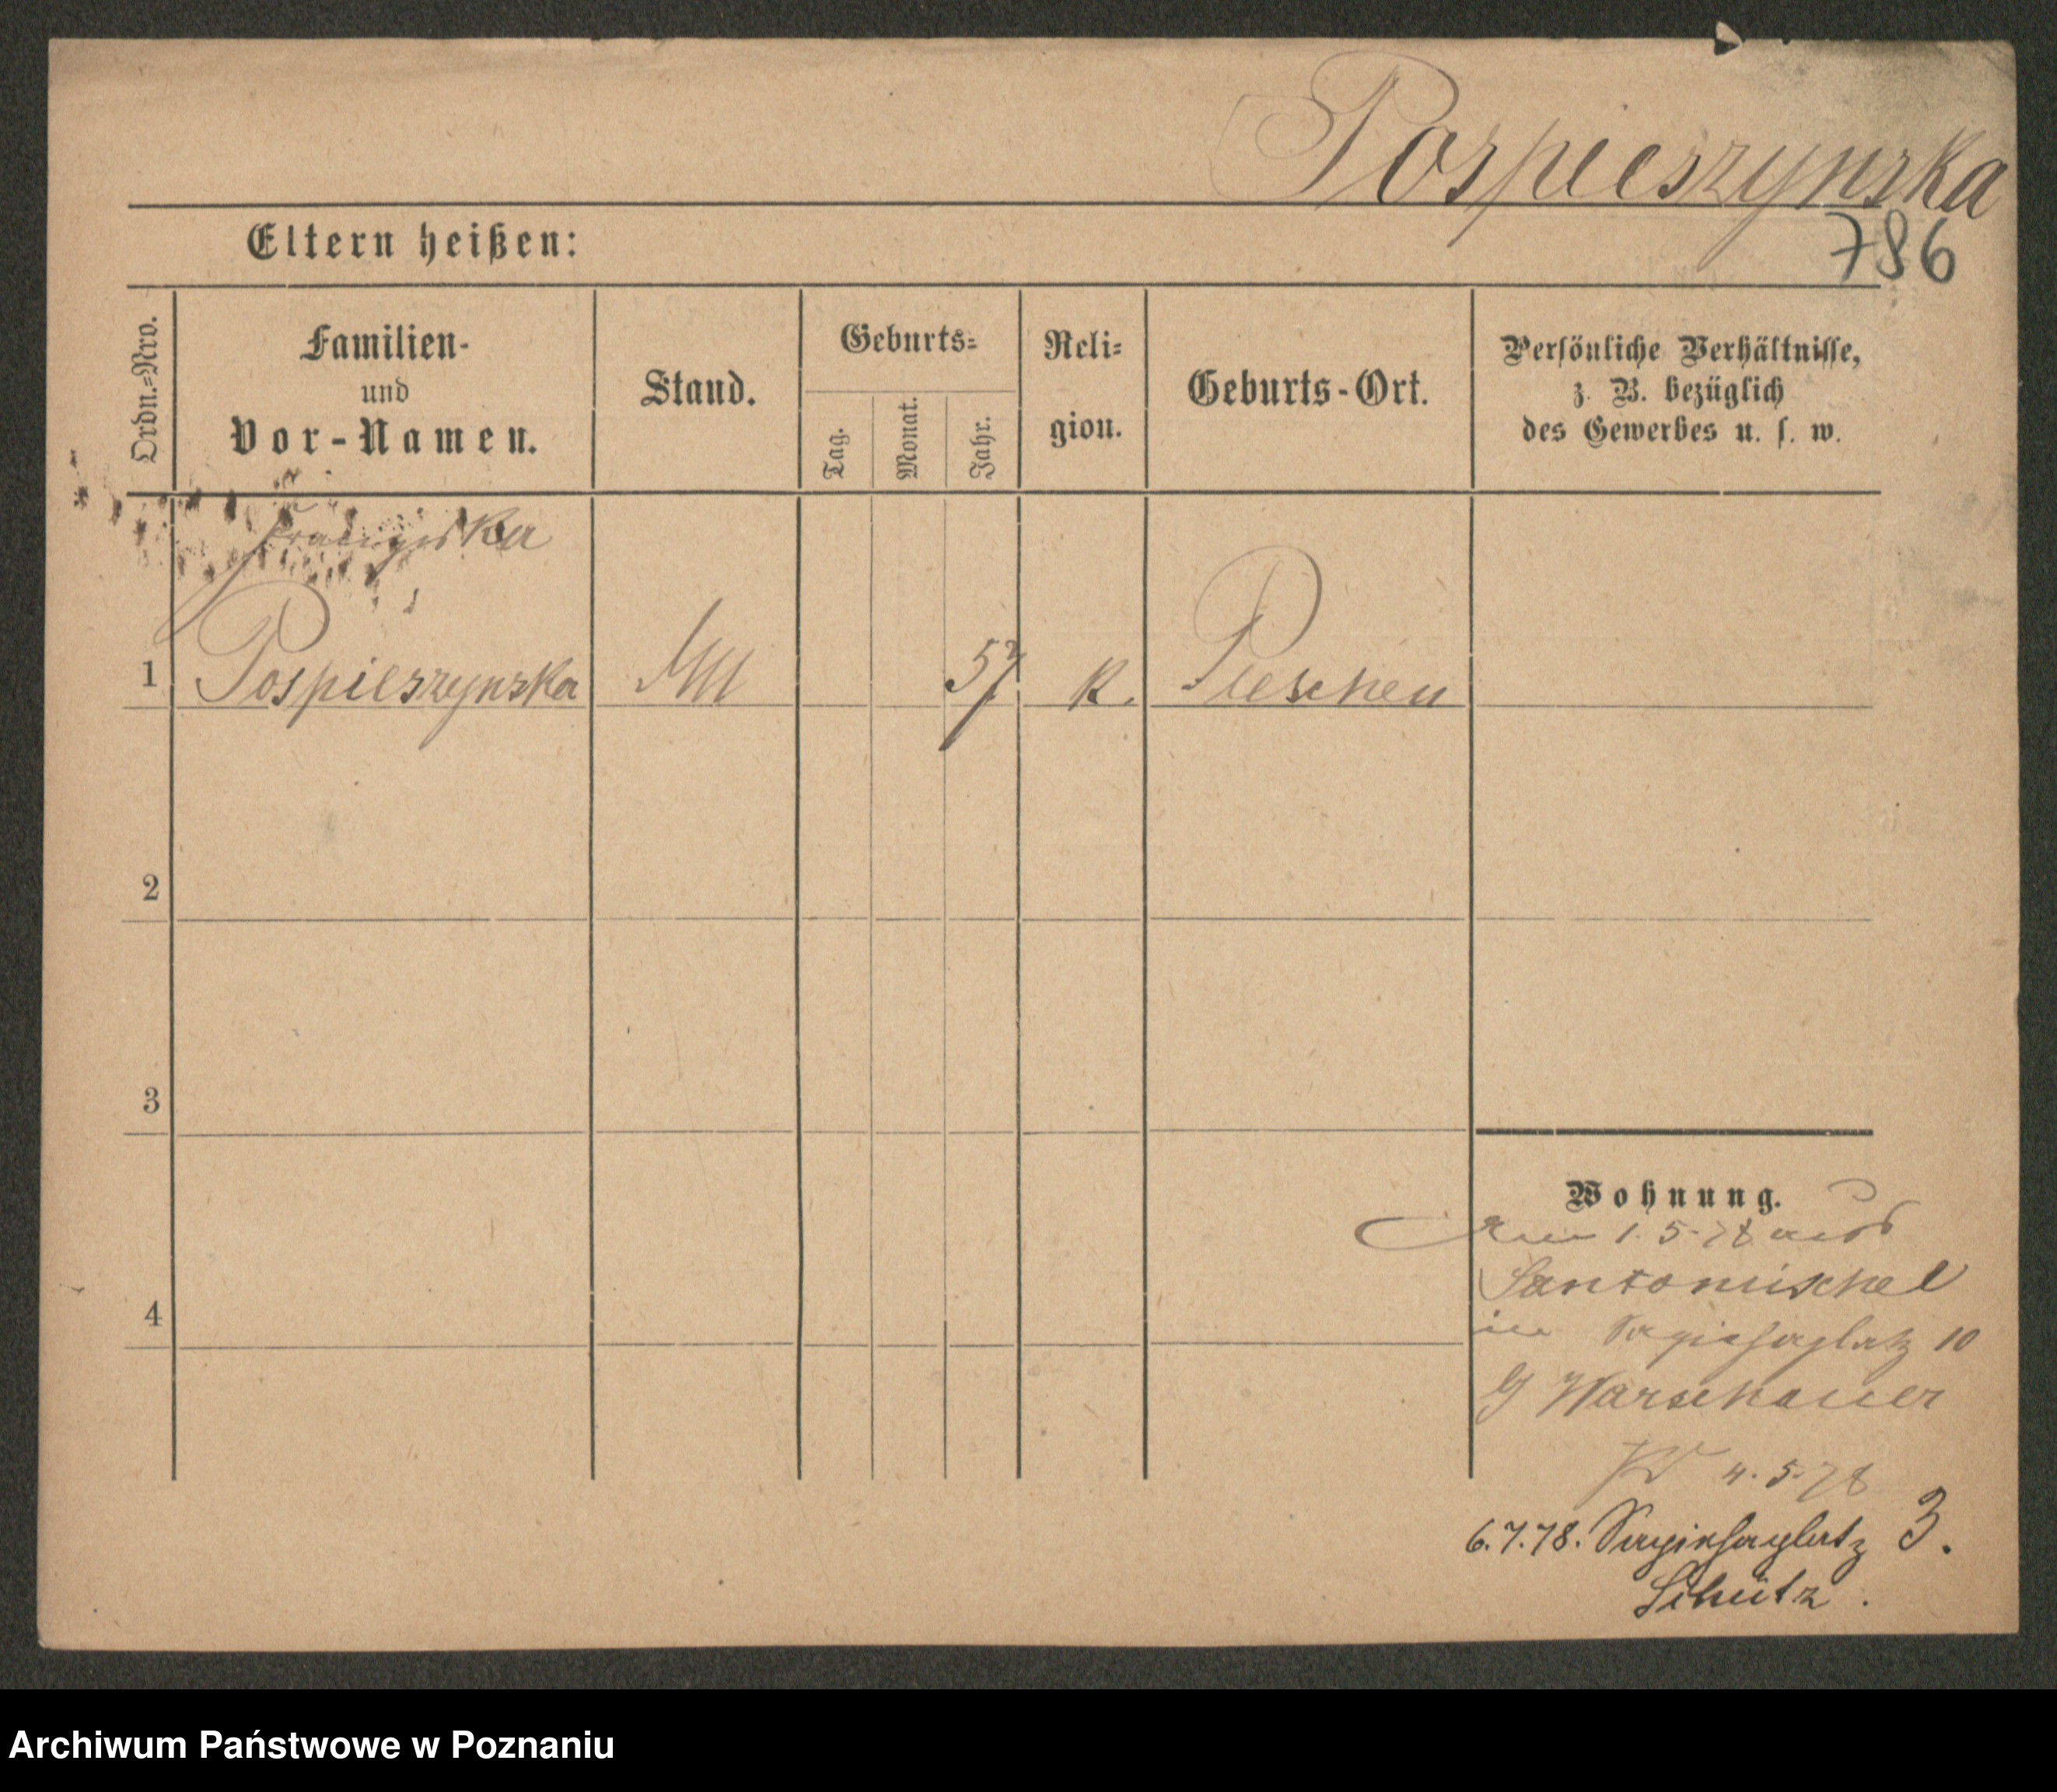 Pospieszynska
786
Eltern heißen:
Ordn.=Nro.
Familien-
und
Vor-Namen.
Stand.
Geburts=
Tag.
Monat.
Jahr.
Reli=
gion.
Geburts-Ort.
Persönliche Verhältnisse,
z. B. bezüglich
des Gewerbes u. s. w.
Franziska
1 Pospieszynska 57 K. Pleschen
2
3
4
Wohnung.
1.5.78 aus
Santomischel
in Sapiehaplatz 10
Warschauer
4.5.78
6.7.78. Sapiehaplatz 3.
Schütz.
Archiwum Państwowe w Poznaniu